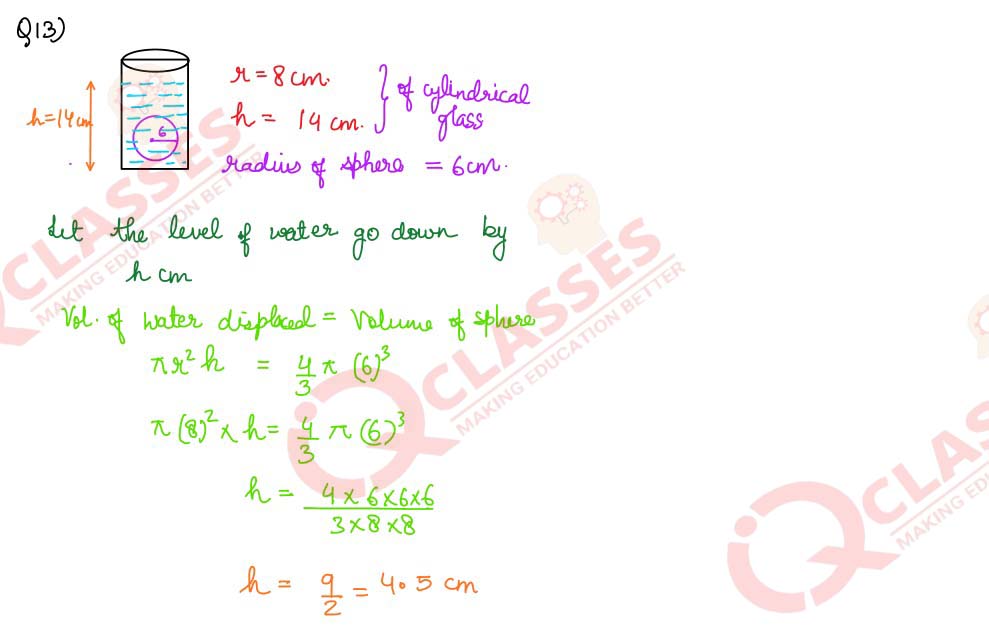 Q13)
h=14cm
6
r = 8 cm.
h = 14 cm.
} of cylindrical glass
radius of sphere = 6cm.
Let the level of water go down by
h cm
Vol. of water displaced = Volume of sphere
πr²h = 4/3 π (6)³
π(8)² × h = 4/3 π (6)³
h = 4×6×6×6 / 3×8×8
h = 9/2 = 4.5 cm
CLASSES
MAKING EDUCATION BETTER
IQ CLASSES
MAKING EDUCATION BETTER
IQ CLASSES
MAKING EDU